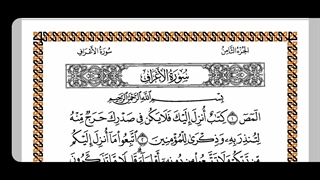 الجزء الثامن سورة الأعراف
سورة الأعراف
بسم الله الرحمن الرحيم
المص ١ كتب أنزل إليك فلا يكن في صدرك حرج منه
لتنذر به وذكرى للمؤمنين ٢ اتبعوا ما أنزل إليكم